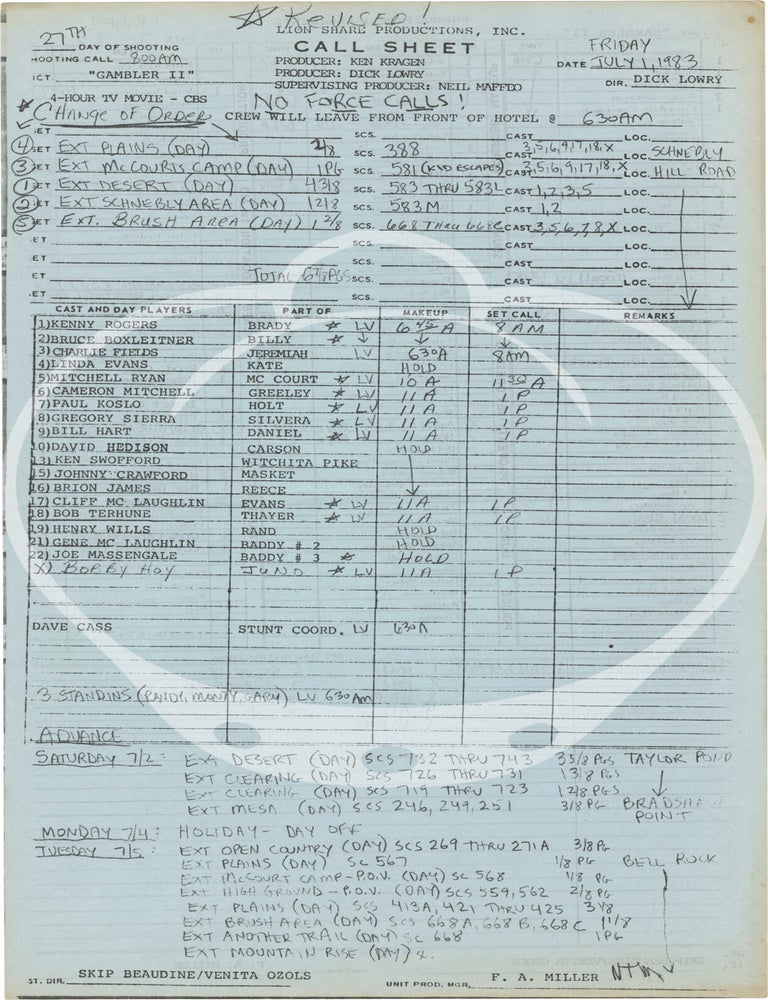 ☆ REVISED!
LION SHARE PRODUCTIONS, INC.
27TH DAY OF SHOOTING CALL SHEET FRIDAY
HOOTING CALL 800AM PRODUCER: KEN KRAGEN DATE JULY 1, 1983
ICT. "GAMBLER II" PRODUCER: DICK LOWRY DIR. DICK LOWRY
SUPERVISING PRODUCER: NEIL MAFFEO
4-HOUR TV MOVIE - CBS NO FORCE CALLS!
CHANGE OF ORDER CREW WILL LEAVE FROM FRONT OF HOTEL @ 630AM
ET SCS. CAST LOC.
④ ET EXT PLAINS (DAY) 2/8 SCS. 388 CAST 3,5,6,9,17,18,X LOC. SCHNEBLY
③ ET EXT McCOURTS CAMP (DAY) 1PG SCS. 581 (KID ESCAPES) CAST 3,5,6,9,17,18,X LOC. HILL ROAD
① ET EXT DESERT (DAY) 4 3/8 SCS. 583 THRU 583L CAST 1,2,3,5 LOC.
② ET EXT SCHNEBLY AREA (DAY) 1 2/8 SCS. 583M CAST 1,2 LOC.
⑤ ET EXT. BRUSH AREA (DAY) 1 2/8 SCS. 668 THRU 668C CAST 3,5,6,7,8,X LOC.
ET SCS. CAST LOC.
ET SCS. CAST LOC.
ET TOTAL PGS SCS. CAST LOC.
ET SCS. CAST LOC.
CAST AND DAY PLAYERS PART OF MAKEUP SET CALL REMARKS
1) KENNY ROGERS BRADY ☆ LV 6 45 A 8 AM
2) BRUCE BOXLEITNER BILLY ☆ ↓ ↓ ↓
3) CHARLIE FIELDS JEREMIAH LV 630A 8AM
4) LINDA EVANS KATE HOLD
5) MITCHELL RYAN MC COURT ☆ LV 10 A 11 30 A
6) CAMERON MITCHELL GREELEY ☆ LV 11 A 1 P
7) PAUL KOSLO HOLT ☆ LV 11 A 1 P
8) GREGORY SIERRA SILVERA ☆ LV 11 A 1 P
9) BILL HART DANIEL ☆ LV 11 A 1 P
10) DAVID HEDISON CARSON HOLD
13) KEN SWOFFORD WITCHITA PIKE
15) JOHNNY CRAWFORD MASKET
16) BRION JAMES REECE ↓
17) CLIFF MC LAUGHLIN EVANS ☆ LV 11A 1 P
18) BOB TERHUNE THAYER ☆ LV 11 A 1 P
19) HENRY WILLS RAND HOLD
21) GENE MC LAUGHLIN BADDY # 2 HOLD
22) JOE MASSENGALE BADDY # 3 ☆ HOLD
X) BOBBY HOY JUNO ☆ LV 11 A 1 P
DAVE CASS STUNT COORD. LV 630A
3 STANDINS (RANDY, MONTY, GARY) LV 630AM
ADVANCE
SATURDAY 7/2: EXT DESERT (DAY) SCS 732 THRU 743 3 5/8 PGS TAYLOR POND
EXT CLEARING (DAY) SCS 726 THRU 731 1 3/8 PGS
EXT CLEARING (DAY) SCS 719 THRU 723 1 2/8 PGS
EXT MESA (DAY) SCS 246, 249, 251 3/8 PG BRADSHAW
POINT
MONDAY 7/4: HOLIDAY - DAY OFF
TUESDAY 7/5: EXT OPEN COUNTRY (DAY) SCS 269 THRU 271A 3/8 PG
EXT PLAINS (DAY) SC 567 1/8 PG BELL ROCK
EXT McCOURT CAMP - P.O.V. (DAY) SC 568 1/8 PG
EXT HIGH GROUND - P.O.V. (DAY) SCS 559, 562 2/8 PG
EXT PLAINS (DAY) SCS 413A, 421 THRU 425 3 1/8
EXT BRUSH AREA (DAY) SCS 668A, 668B, 668C 1 1/8
EXT ANOTHER TRAIL (DAY) SC 668 1PG
EXT MOUNTAIN RISE (DAY)
ST. DIR. SKIP BEAUDINE/VENITA OZOLS UNIT PROD. MGR. F. A. MILLER